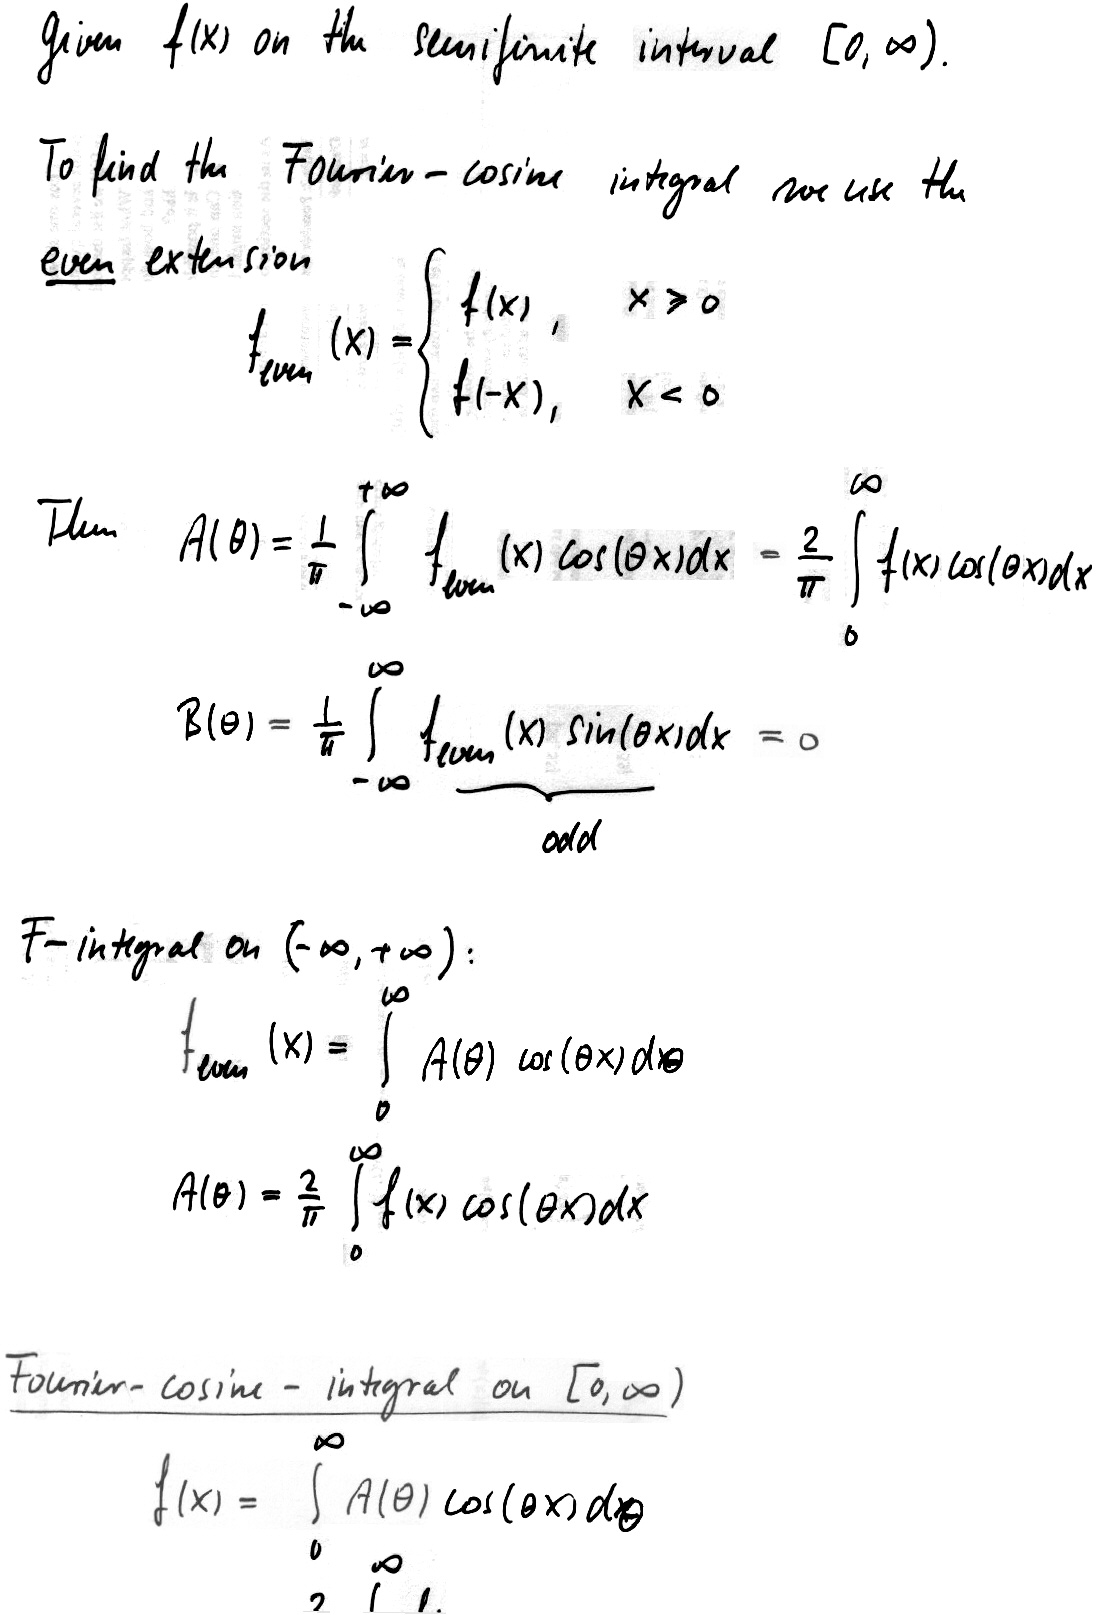 Given f(x) on the semifinite interval [0, ∞).
To find the Fourier-cosine integral we use the
even extension
f_even (x) = { f(x), x ≥ 0
f(-x), x < 0
Then A(θ) = 1/π ∫_{-∞}^{+∞} f_even (x) cos(θx)dx = 2/π ∫_0^∞ f(x) cos(θx)dx
B(θ) = 1/π ∫_{-∞}^{∞} f_even (x) sin(θx)dx = 0
odd
F-integral on (-∞, +∞):
f_even (x) = ∫_0^∞ A(θ) cos(θx) dθ
A(θ) = 2/π ∫_0^∞ f(x) cos(θx)dx
Fourier-cosine-integral on [0, ∞)
f(x) = ∫_0^∞ A(θ) cos(θx) dθ